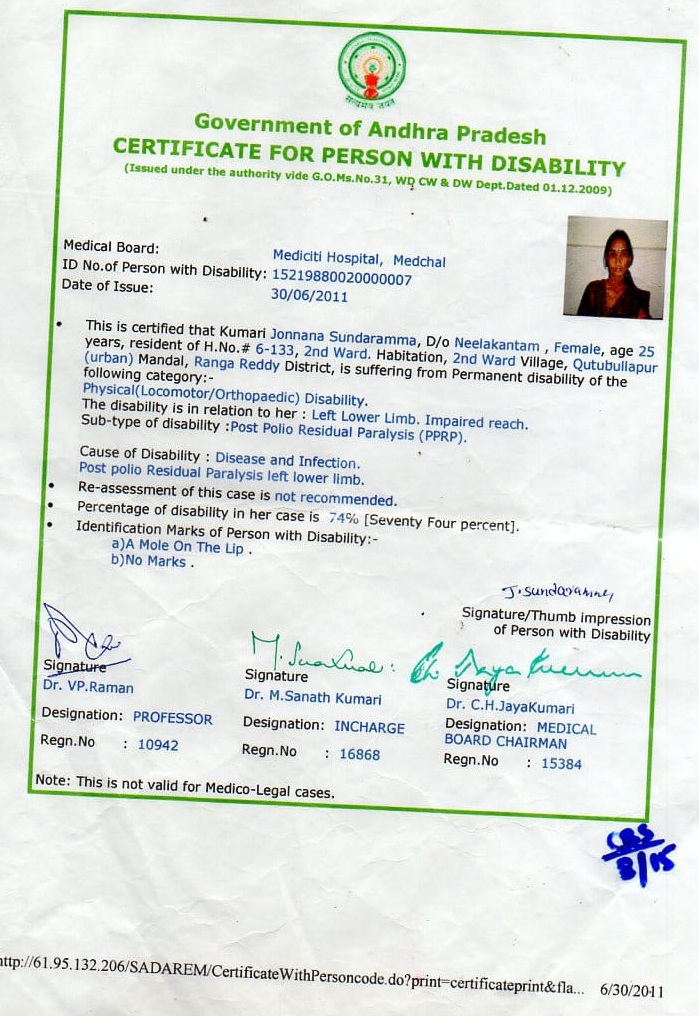 सत्यमेव जयते
Government of Andhra Pradesh
CERTIFICATE FOR PERSON WITH DISABILITY
(Issued under the authority vide G.O.Ms.No.31, WD CW & DW Dept.Dated 01.12.2009)
Medical Board: Mediciti Hospital, Medchal
ID No.of Person with Disability: 15219880020000007
Date of Issue: 30/06/2011
• This is certified that Kumari Jonnana Sundaramma, D/o Neelakantam , Female, age 25
years, resident of H.No.# 6-133, 2nd Ward. Habitation, 2nd Ward Village, Qutubullapur
(urban) Mandal, Ranga Reddy District, is suffering from Permanent disability of the
following category:-
Physical(Locomotor/Orthopaedic) Disability.
The disability is in relation to her : Left Lower Limb. Impaired reach.
Sub-type of disability :Post Polio Residual Paralysis (PPRP).
Cause of Disability : Disease and Infection.
Post polio Residual Paralysis left lower limb.
• Re-assessment of this case is not recommended.
• Percentage of disability in her case is 74% [Seventy Four percent].
• Identification Marks of Person with Disability:-
a)A Mole On The Lip .
b)No Marks .
J. Sundaramma
Signature/Thumb impression
of Person with Disability
Signature Signature Signature
Dr. VP.Raman Dr. M.Sanath Kumari Dr. C.H.JayaKumari
Designation: PROFESSOR Designation: INCHARGE Designation: MEDICAL
BOARD CHAIRMAN
Regn.No : 10942 Regn.No : 16868 Regn.No : 15384
Note: This is not valid for Medico-Legal cases.
8/15
http://61.95.132.206/SADAREM/CertificateWithPersoncode.do?print=certificateprint&fla... 6/30/2011